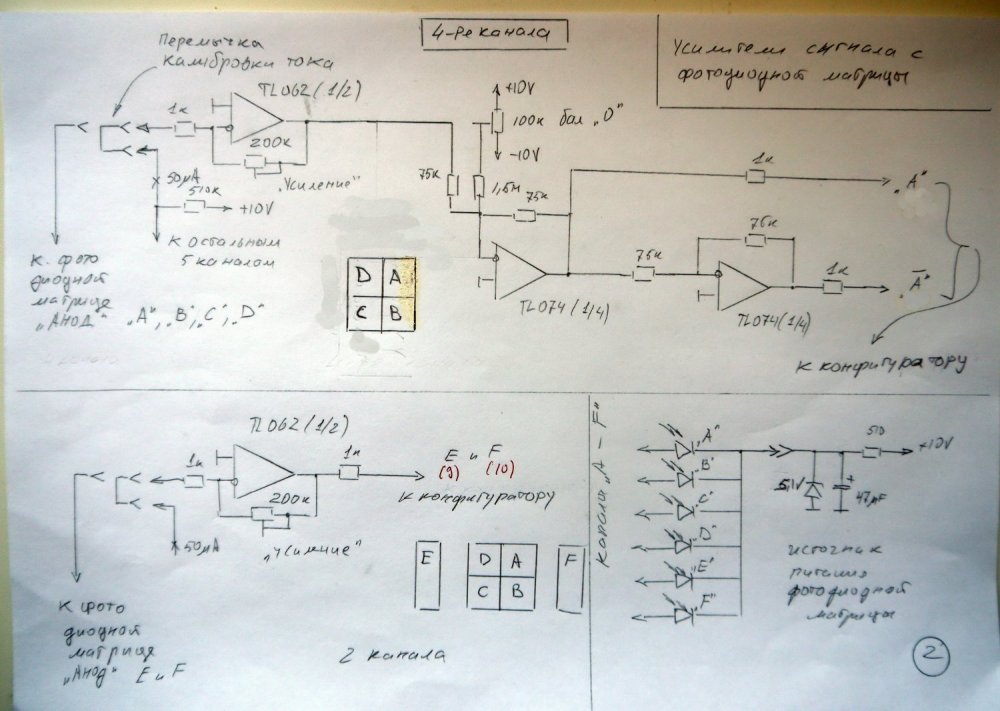 4-ре канала
Усилители сигнала с
фотодиодной матрицы
Перемычка
калибровки тока
TL062 (1/2)
1к
200к
„Усиление"
50μA
510к
+10V
к остальным
5 каналом
к фото
диодной
матрице
„Анод" „А", „В", „С", „D"
+10V
100к бал „0"
-10V
75к
1,5м
75к
TL074 (1/4)
75к
75к
TL074 (1/4)
1к
„А"
1к
„А̅"
к конфигуратору
D A
C B
TL062 (1/2)
1к
200к
„Усиление"
50μA
1к
E и F
(9) (10)
к конфигуратору
к фото
диодной
матрице
„Анод" E и F
E
D A
C B
F
2 канала
„А - F"
„А"
„В"
„С"
„D"
„Е"
„F"
510
+10V
5,1V
+
47μF
источник
питания
фотодиодной
матрицы
2